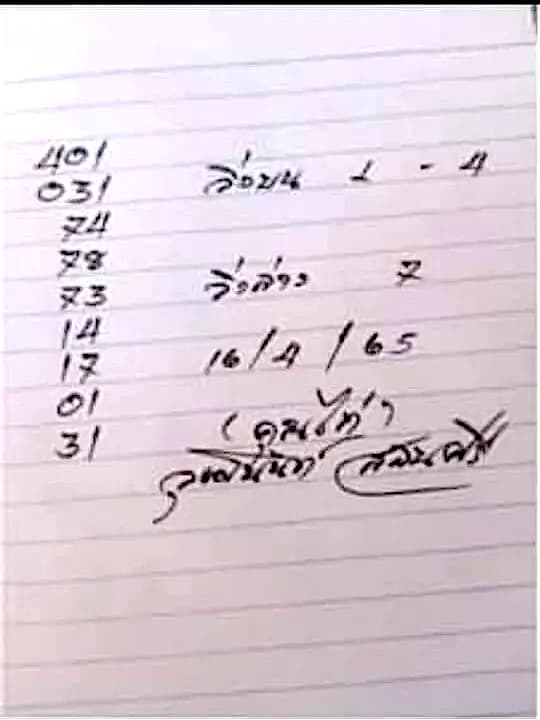 401
031 วิ่งบน 1 - 4
74
78
73 วิ่งล่าง 7
14
17 16/4/65
01
31